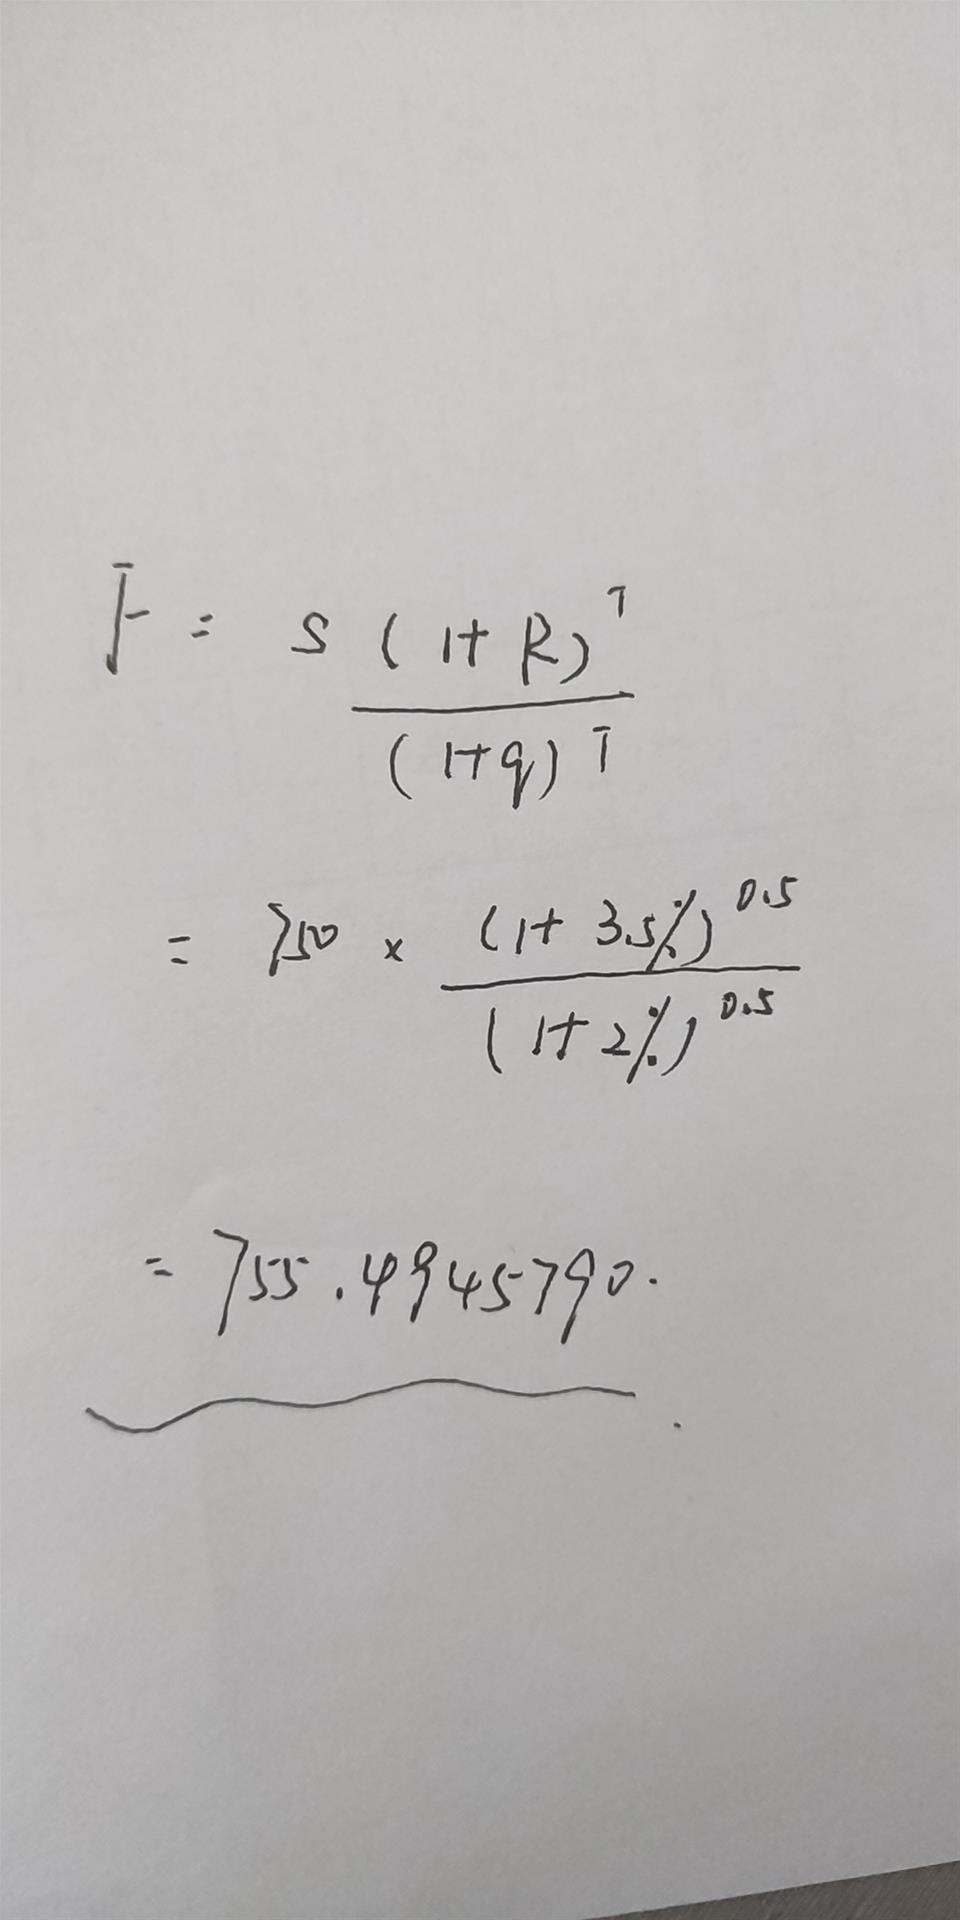 F = S (1+R)^T
(1+q)^T
= 750 × (1+3.5%)^0.5
(1+2%)^0.5
= 755.4945790.